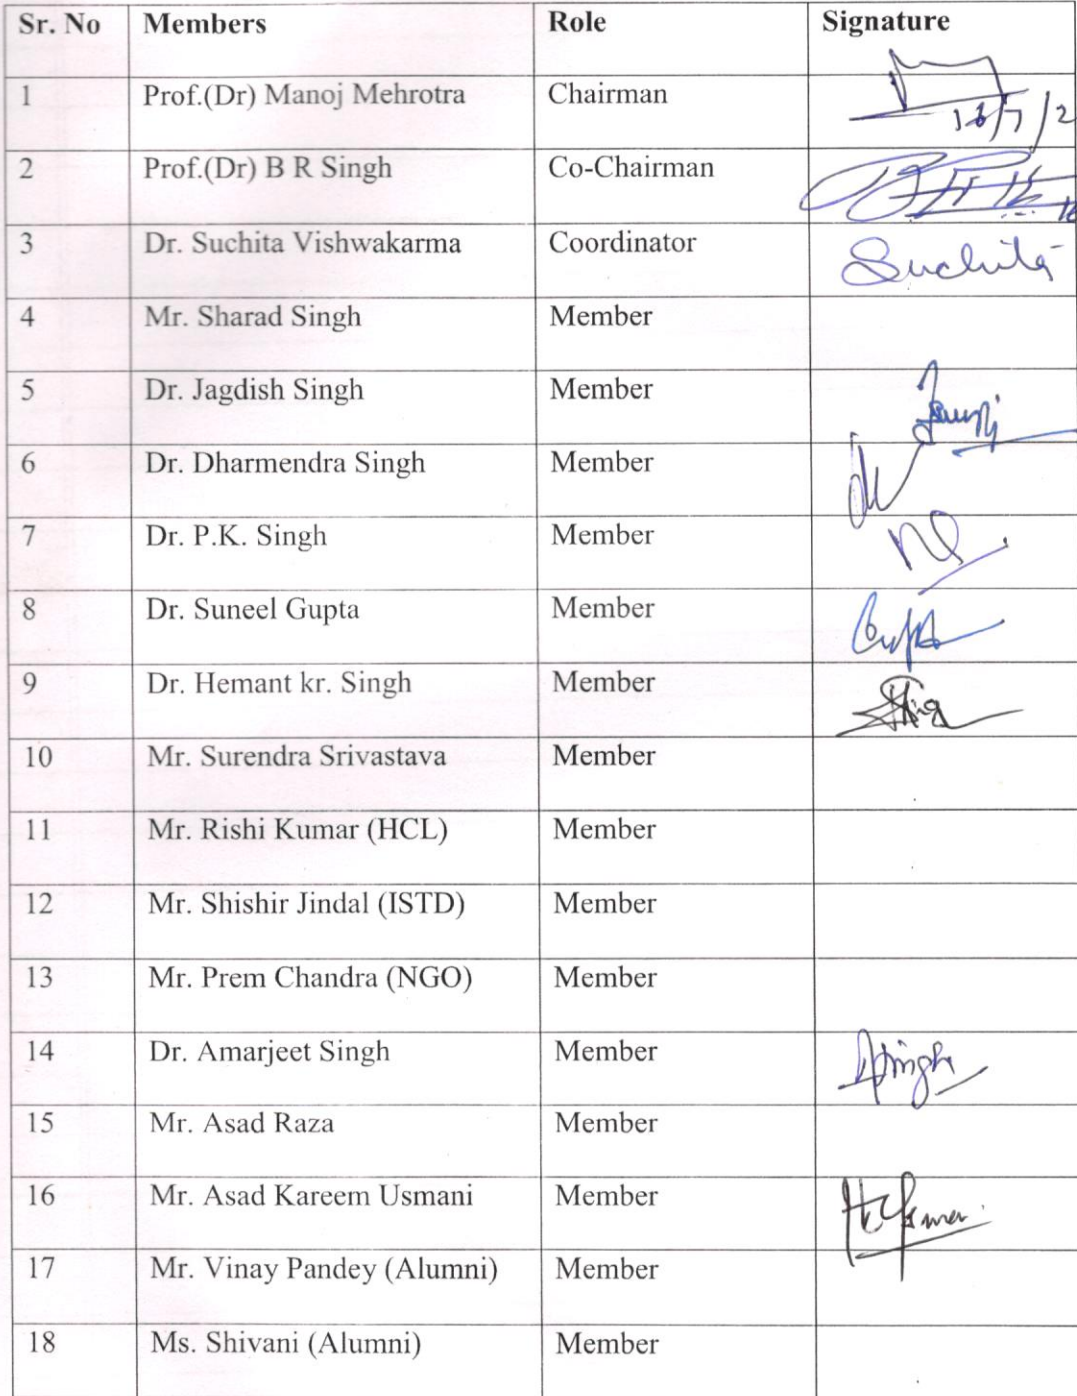 Sr. No Members Role Signature
1 Prof.(Dr) Manoj Mehrotra Chairman
2 Prof.(Dr) B R Singh Co-Chairman
3 Dr. Suchita Vishwakarma Coordinator Suchita
4 Mr. Sharad Singh Member
5 Dr. Jagdish Singh Member
6 Dr. Dharmendra Singh Member
7 Dr. P.K. Singh Member
8 Dr. Suneel Gupta Member
9 Dr. Hemant kr. Singh Member
10 Mr. Surendra Srivastava Member
11 Mr. Rishi Kumar (HCL) Member
12 Mr. Shishir Jindal (ISTD) Member
13 Mr. Prem Chandra (NGO) Member
14 Dr. Amarjeet Singh Member
15 Mr. Asad Raza Member
16 Mr. Asad Kareem Usmani Member
17 Mr. Vinay Pandey (Alumni) Member
18 Ms. Shivani (Alumni) Member